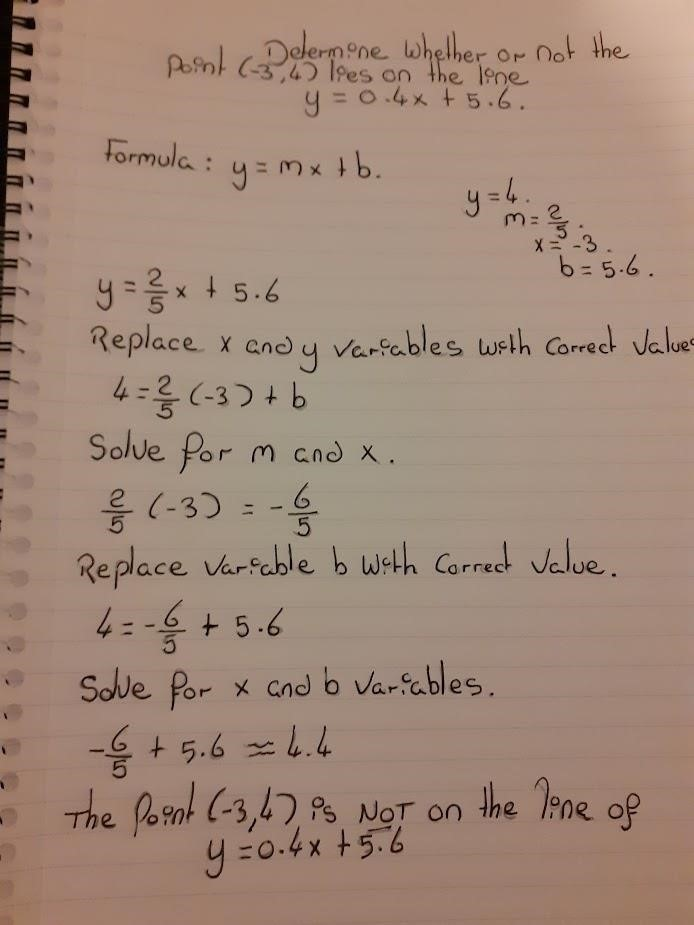 Determine whether or not the
Point (-3,4) lies on the line
y = 0.4x + 5.6.
Formula: y = mx + b.
y = 4.
m = 2/5.
x = -3.
b = 5.6.
y = 2/5 x + 5.6
Replace x and y variables with Correct Values
4 = 2/5 (-3) + b
Solve for m and x.
2/5 (-3) = -6/5
Replace variable b with Correct Value.
4 = -6/5 + 5.6
Solve for x and b Variables.
-6/5 + 5.6 ≈ 4.4
The Point (-3,4) is NOT on the line of
y = 0.4x + 5.6